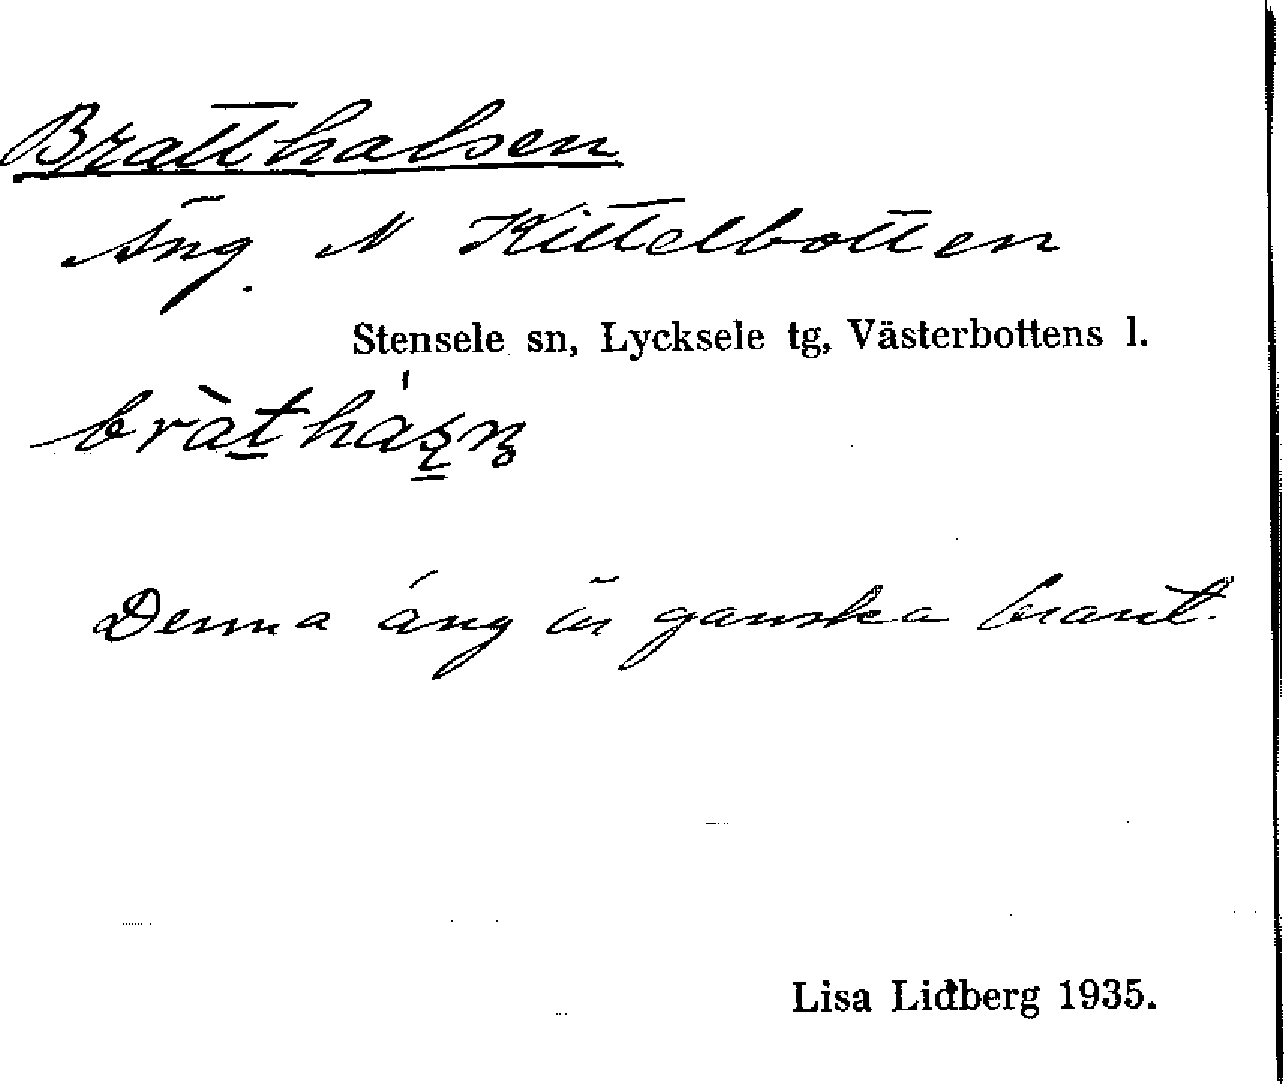 Bratthalsen
Äng. N Kittelbotten
Stensele sn, Lycksele tg, Västerbottens l.
Denna äng är ganska brant.
Lisa Lidberg 1935.